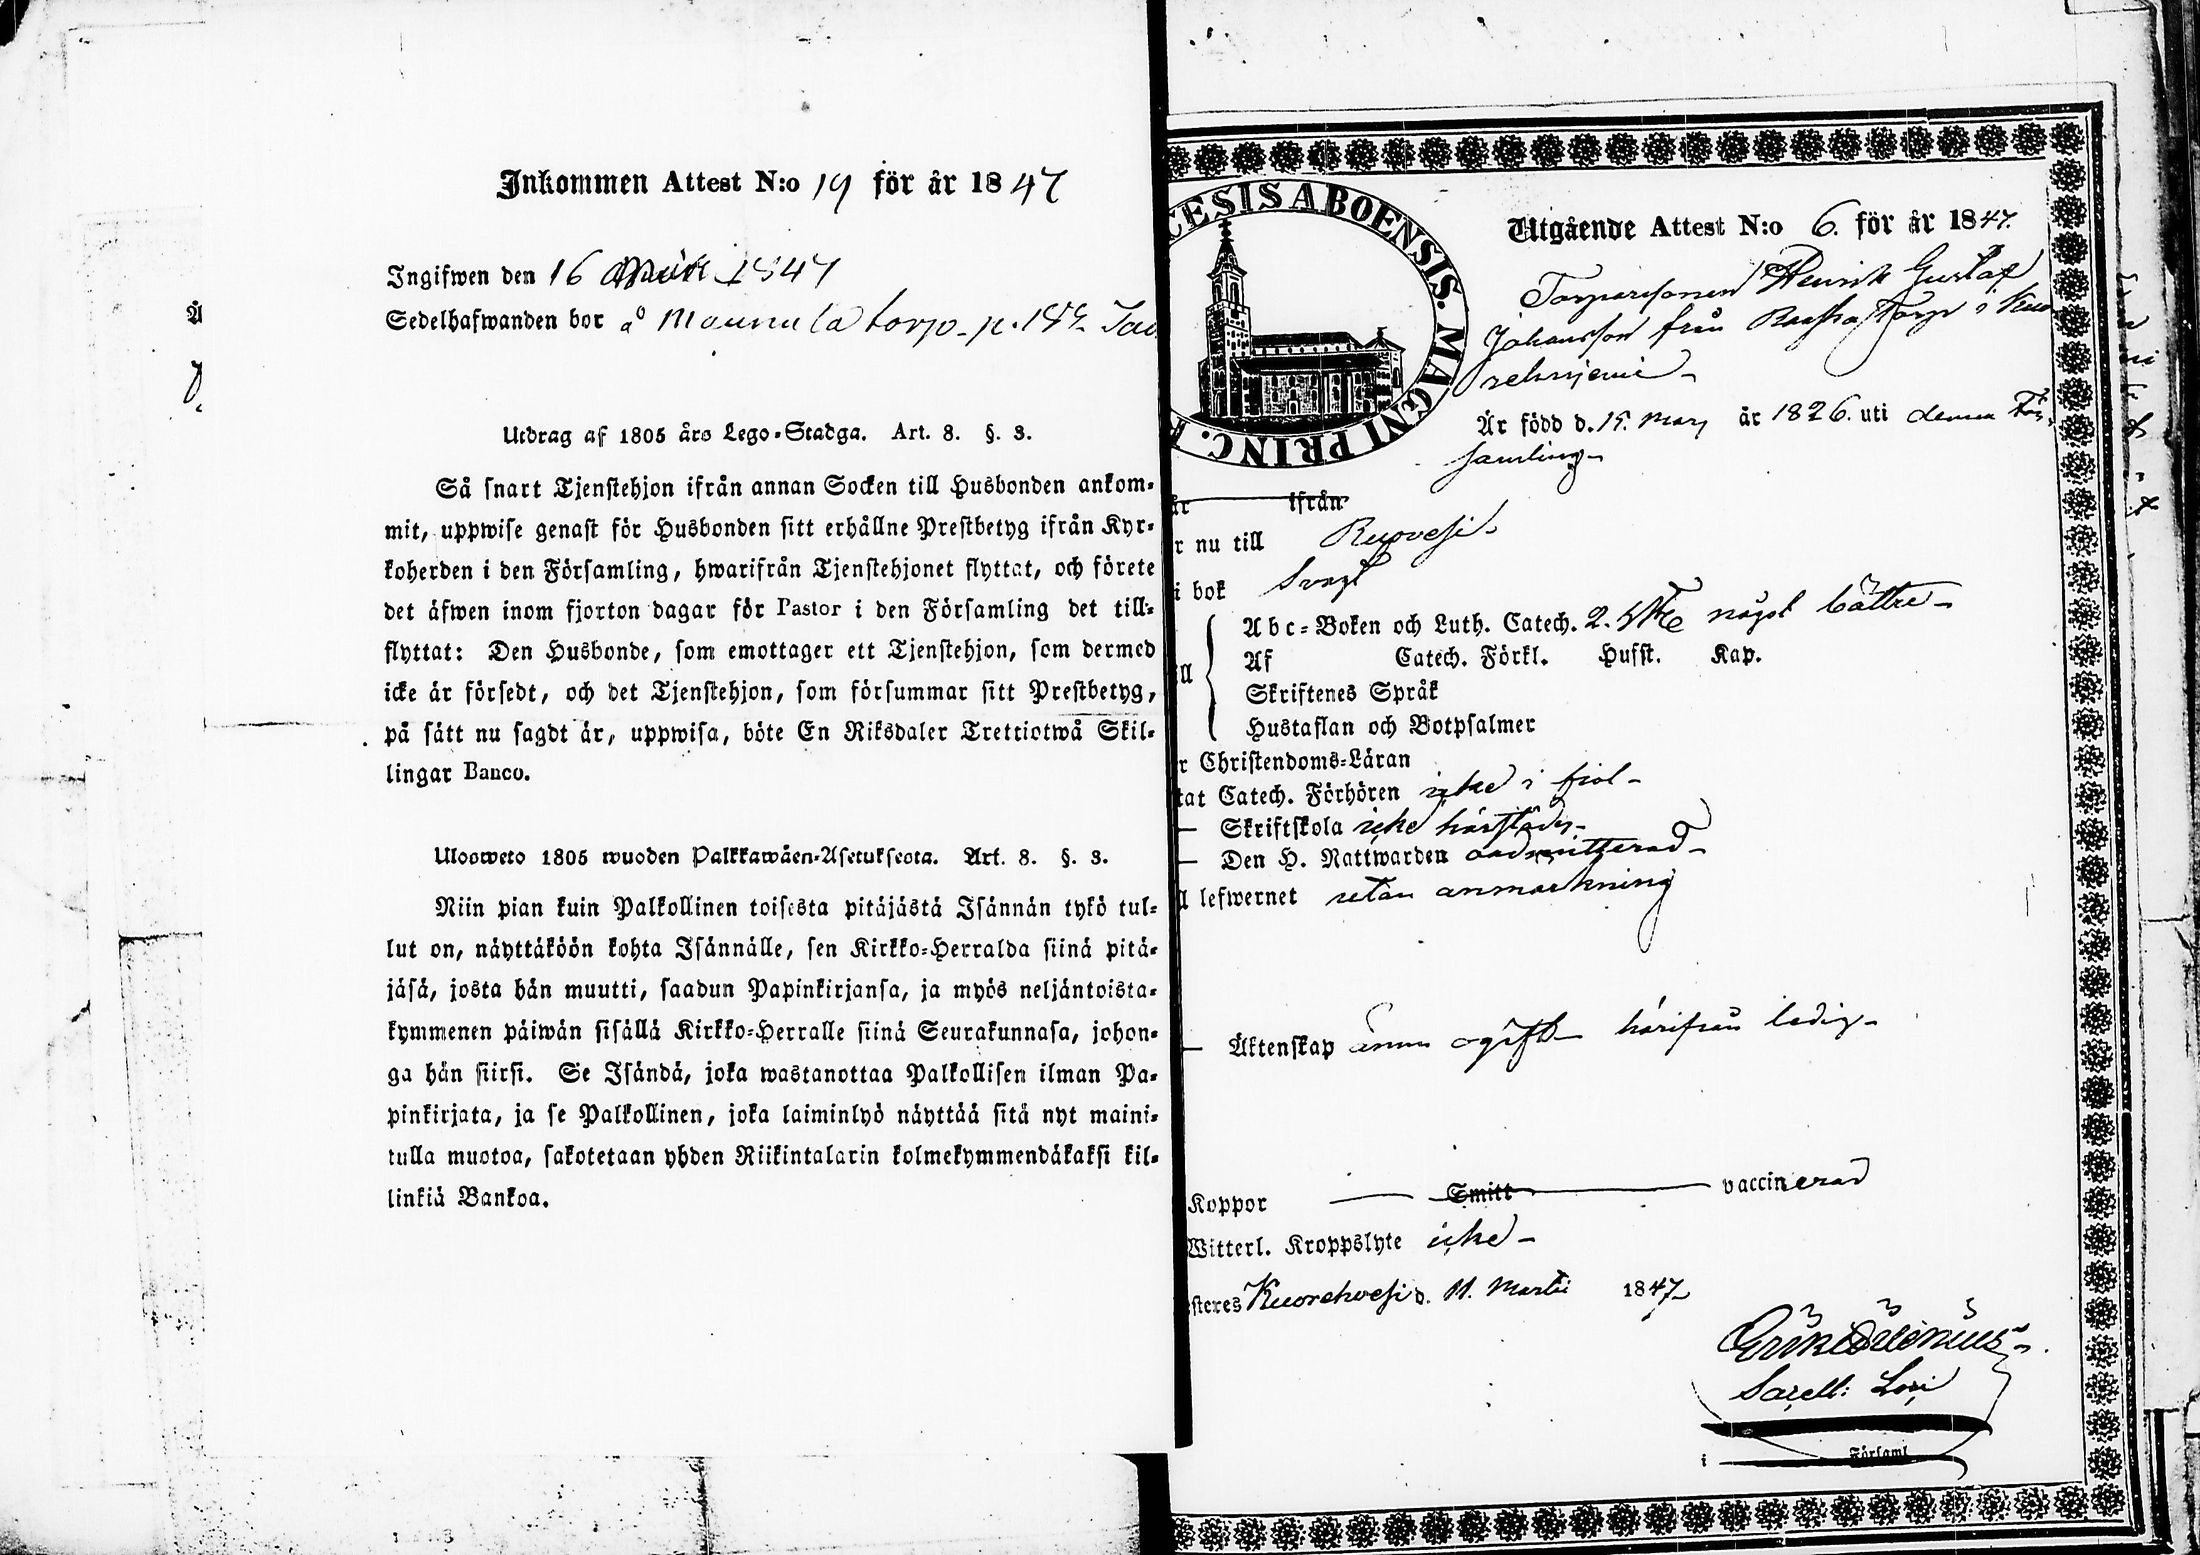 Inkommen Attest N:o 19 för år 1847
Ingifwen den 16 1847
Sedelhafwanden bor å Maunula torp. p. 
Utdrag af 1805 års Lego-Stadga. Art. 8. §. 3.
Så snart Tjenstehjon ifrån annan Socken till Husbonden ankom-
mit, uppwise genast för Husbonden sitt erhållne Prestbetyg ifrån Kyr-
koherden i den Församling, hwarifrån Tjenstehjonet flyttat, och förete
det äfwen inom fjorton dagar för Pastor i den Församling det till-
flyttat: Den Husbonde, som emottager ett Tjenstehjon, som dermed
icke är försedt, och det Tjenstehjon, som försummar sitt Prestbetyg,
på sätt nu sagdt är, uppwisa, böte En Riksdaler Trettiotwå Skil-
lingar Banco.
Ulosweto 1805 wuoden Palkkawäen-Asetuksesta. Art. 8. §. 3.
Niin pian kuin Palkollinen toisesta pitäjästä Isännän tykö tul-
lut on, näyttäköön kohta Isännälle, sen Kirkko-Herralda siinä pitä-
jäsä, josta hän muutti, saadun Papinkirjansa, ja myös neljäntoista-
kymmenen päiwän sisällä Kirkko-Herralle siinä Seurakunnasa, johon-
ga hän siirsi. Se Isändä, joka wastanottaa Palkollisen ilman Pa-
pinkirjata, ja se Palkollinen, joka laiminlyö näyttää sitä nyt maini-
tulla muotoa, sakotetaan yhden Riikintalarin kolmekymmendäkaksi kil-
linkiä Bankoa.
CESIS ABOENSIS. MAGNI PRINC. F
Utgående Attest N:o 6. för år 1847.
Torparesonen Henrik Gustaf
Johansson från Torp i Kuo
rehnjemi
Är född d. 15. Mars år 1826. uti denna För-
samling
år ifrån
r nu till Ruovesi
i bok Svagt
ll
Abc-Boken och Luth. Catech. 2. något bättre
Af Catech. Förkl. Husst. Kap.
Skriftenes Språk
Hustaflan och Botpsalmer
r Christendoms-Läran
tat Catech. Förhören icke i fjol
— Skriftskola icke härstädes
— Den H. Nattwarden oadmitterad
l lefwernet utan anmärkning
— Äktenskap ännu ogift härifrån ledig
Koppor Smitt vaccinerad
Witterl. Kroppslyte icke
steres Kuorehvesi d. 11. Martii 1847
Sacell:
i Församl